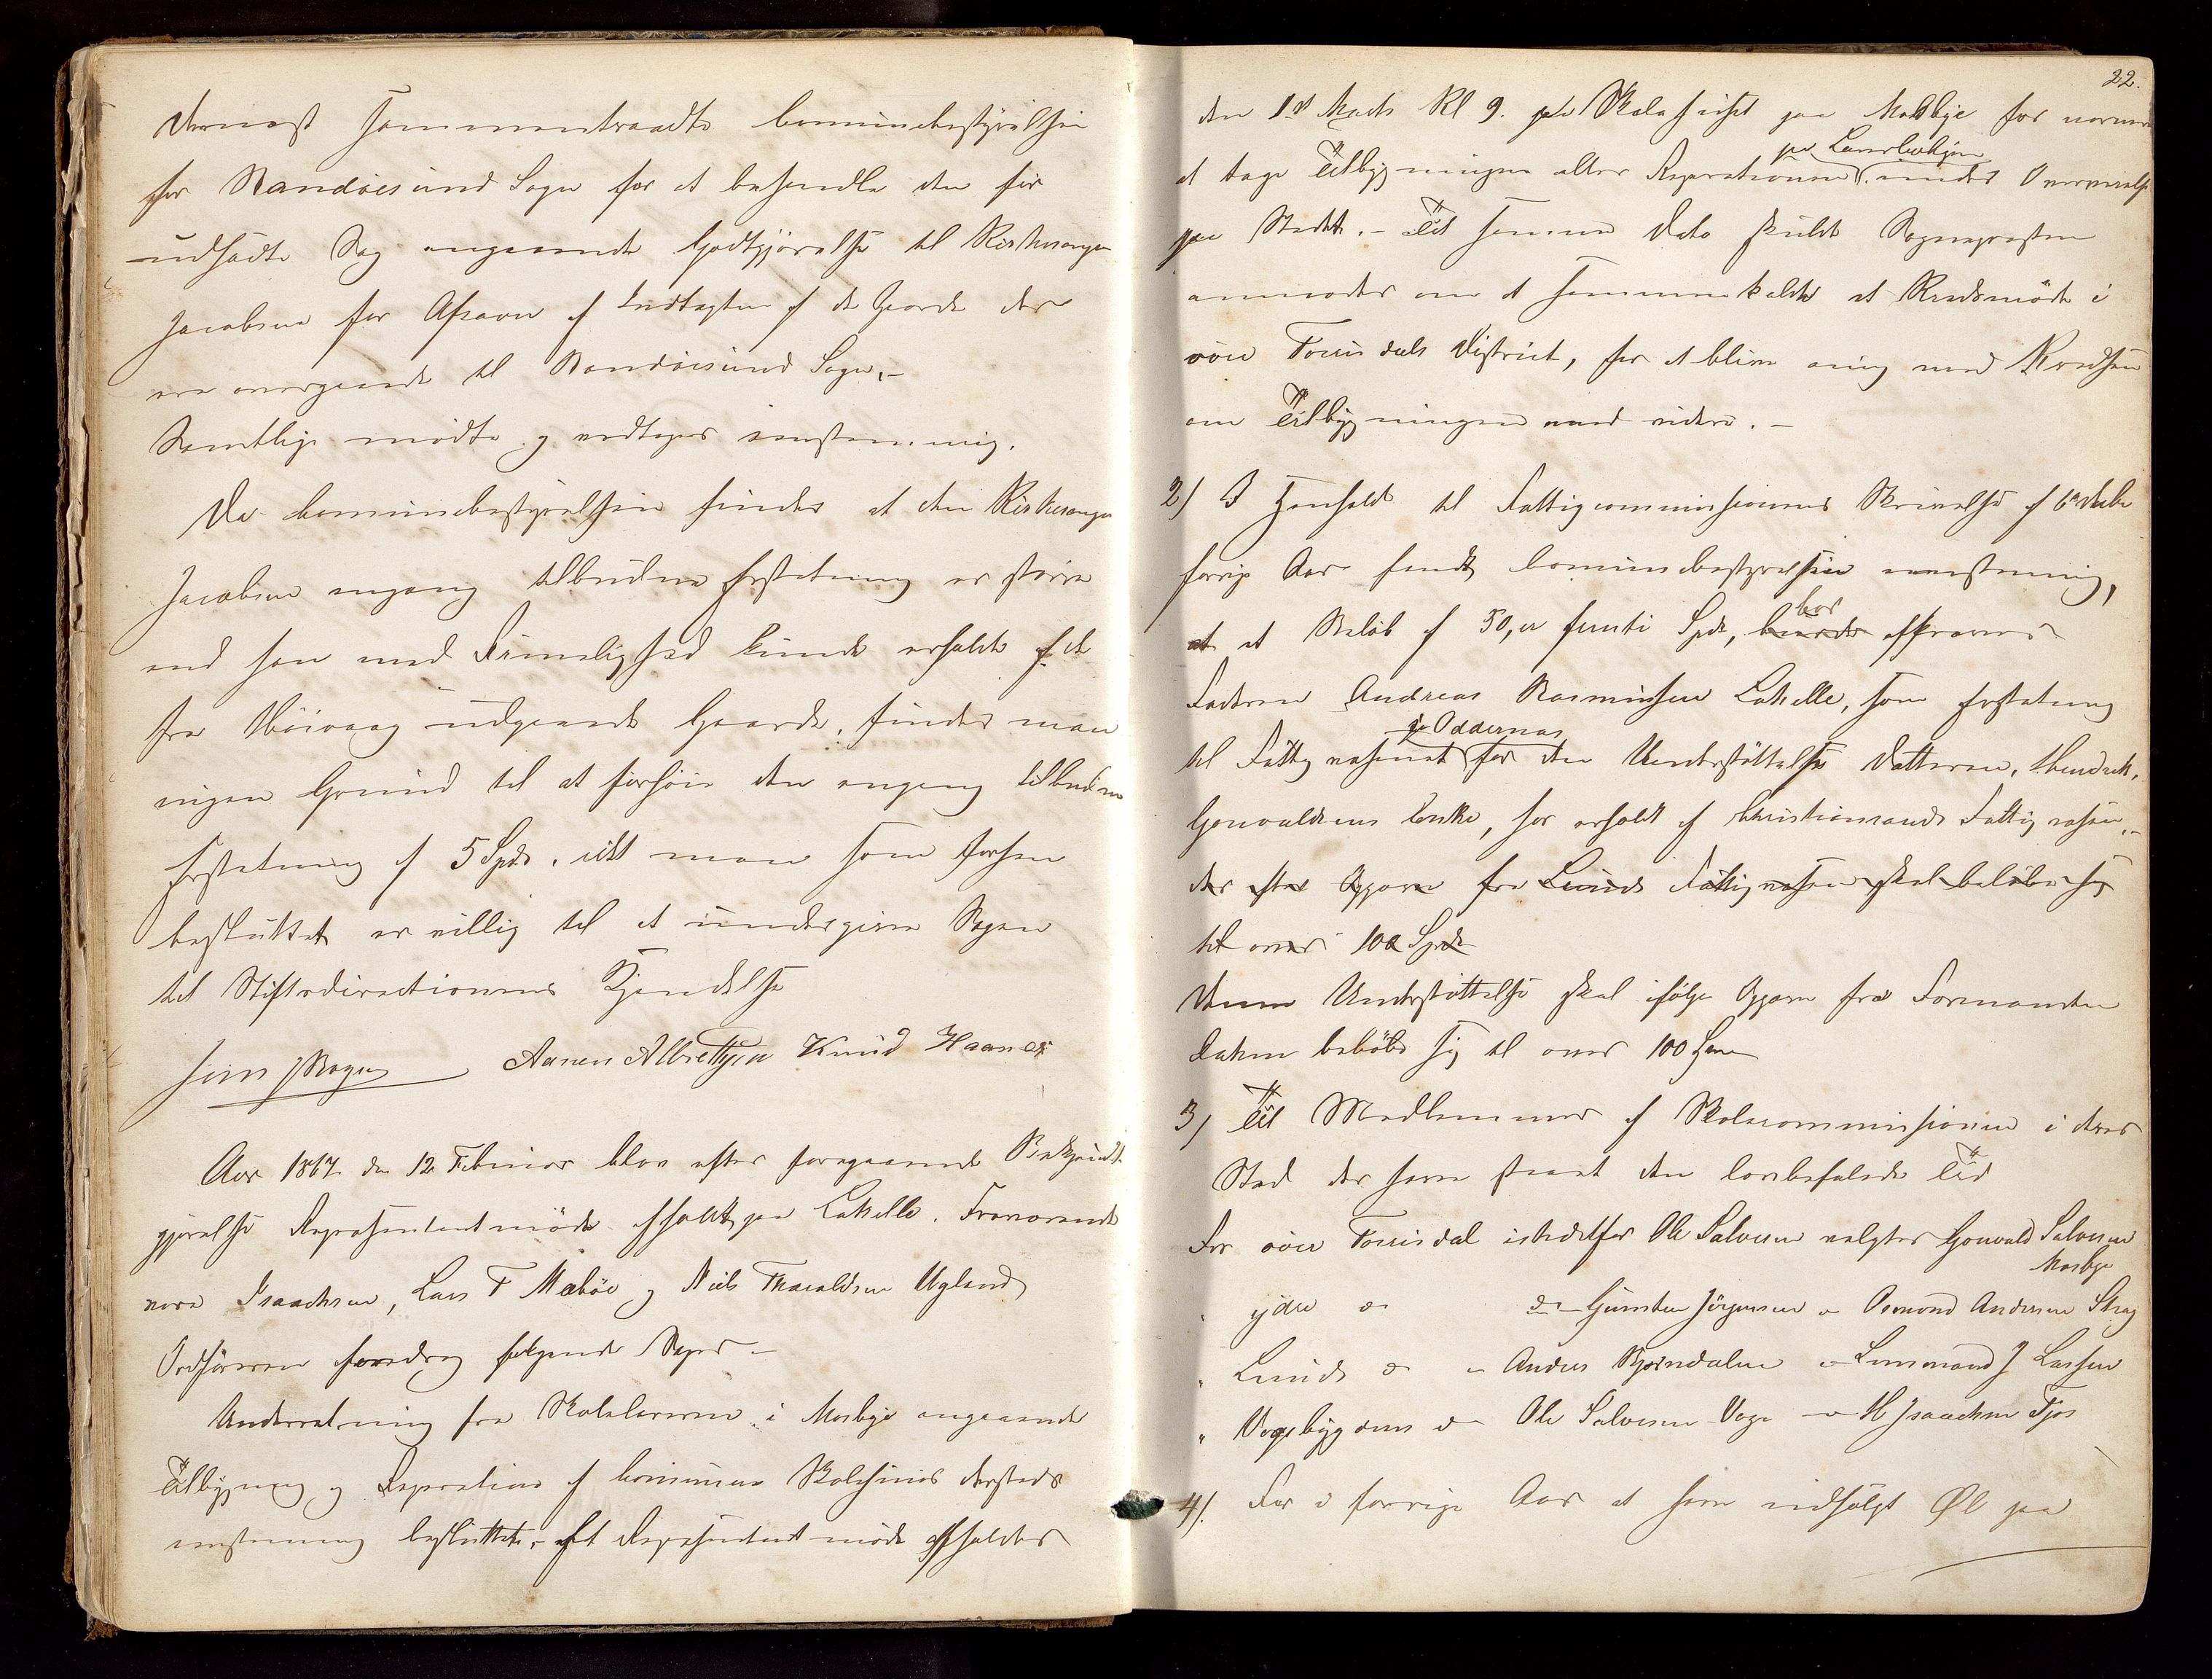 Dernæst sammentraadte Communebestyrelsen
for Randøesund Sogn for at behandle den før
udsadte Sag angaaende Godtgjørelse til Kirkesanger
Jacobsen for Afsavn af Indtægten af de Gaarde der
ere overgaaede til Randøesund Sogn.-
Samtlige mødte og vedtoges eenstemmig.
Da Communebestyrelsen finder at den Kirkesanger
Jacobsen engang tilbudne Erstatning er større
end han med Rimelighed kunde erholde af de
fra Høivaag udgaaede Gaarde, finder man
ingen Grund til at forhøie den engang tilbudne
Erstatning af 5 Spd. idet man som forhen
besluttet er villig til at undergive Sagen
til Stiftsdirectionens Kjendelse
Jens Aanen Albrettsen Knud Haanes
Aar 1867 den 12 Februar blev efter foregaaende Bekjendt
gjørelse Repræsentantmøde afholdt paa Lahelle. Fraværende
vare Isaachsen, Lars T Mæbøe og Niels Tharaldsen Ugland
Ordføreren foredrog følgende Sager -
Underretning fra Skolelæreren i Mosbye angaaende
Tilbygning og Reparation af Communens Skolehuus dersteds
eenstemmig besluttet, at Repræsentantmøde afholdes
22.
den 1st Marts Kl 9. paa Skolehuset paa Mosbye for nærmere
at tage Tilbygningen eller Reparationen under Overveielse
paa Stedet. - Til samme Dato skulde Sognepræsten
anmodes om at sammenkalde et Kredsmøde i
øvre Torrisdals District, for at blive enig med Kredsen
om Tilbygningen med videre. -
2) I Henhold til Fattigcommissionens Skrivelse af 6te Decbr
forrige Aar fandt Communebestyrelsen eenstemmig,
at et Beløb af 50, er femti Spd, burde bør affkræves
Faderen Andreas Rasmussen Lahelle, som Erstatning
til Fattigvæsenet i Oddernes for den Understøttelse Datteren,
Gonvaldsens Enke, har erholdt af Christianssands Fattigvæsen,-
der efter Opgave fra Lunds Fattigvæsen skal beløbe sig
til over 100 Spd
Denne Understøttelse skal ifølge Opgave fra Formanden
beløbe sig til over 100
3) Til Medlemmer af Skolecommissionen i deres
Sted der have staaet den lovbefalede Tid
For øvre Torrisdal istedetfor Ole Salvesen valgtes Gonvald Salvesen
Mosbye
" ydre do do Gunsten Jørgensen " Osmund Andersen Stray
" Lunds do " Anders Bjørndalen " Lensmand J Larsen
" Vogsbygdens do Ole Salvesen Voge " H Isaachsen Fjos
4). For i forrige Aar at have udsolgt Øl paa